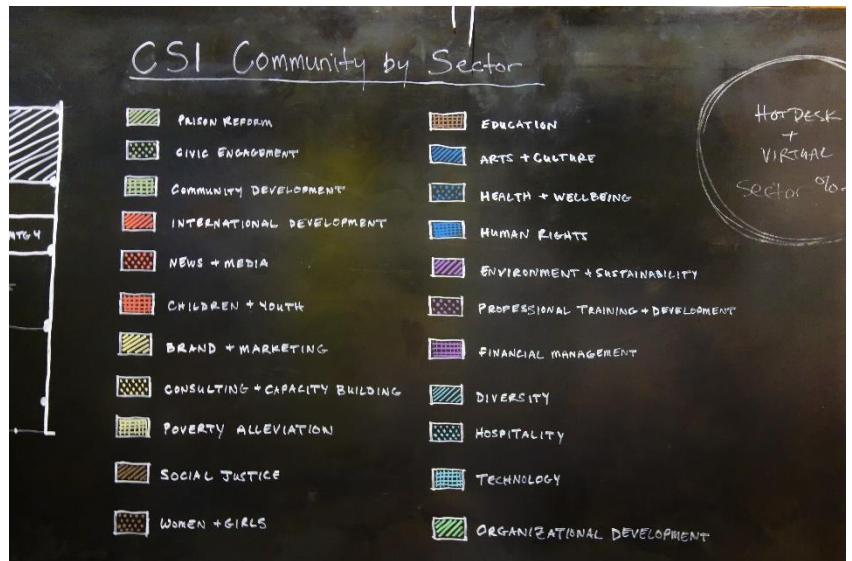 CSI Community by Sector
PRISON REFORM
CIVIC ENGAGEMENT
COMMUNITY DEVELOPMENT
INTERNATIONAL DEVELOPMENT
NEWS + MEDIA
CHILDREN + YOUTH
BRAND + MARKETING
CONSULTING + CAPACITY BUILDING
POVERTY ALLEVIATION
SOCIAL JUSTICE
WOMEN + GIRLS
EDUCATION
ARTS + CULTURE
HEALTH + WELLBEING
HUMAN RIGHTS
ENVIRONMENT + SUSTAINABILITY
PROFESSIONAL TRAINING + DEVELOPMENT
FINANCIAL MANAGEMENT
DIVERSITY
HOSPITALITY
TECHNOLOGY
ORGANIZATIONAL DEVELOPMENT
HOT DESK
+
VIRTUAL
Sector %